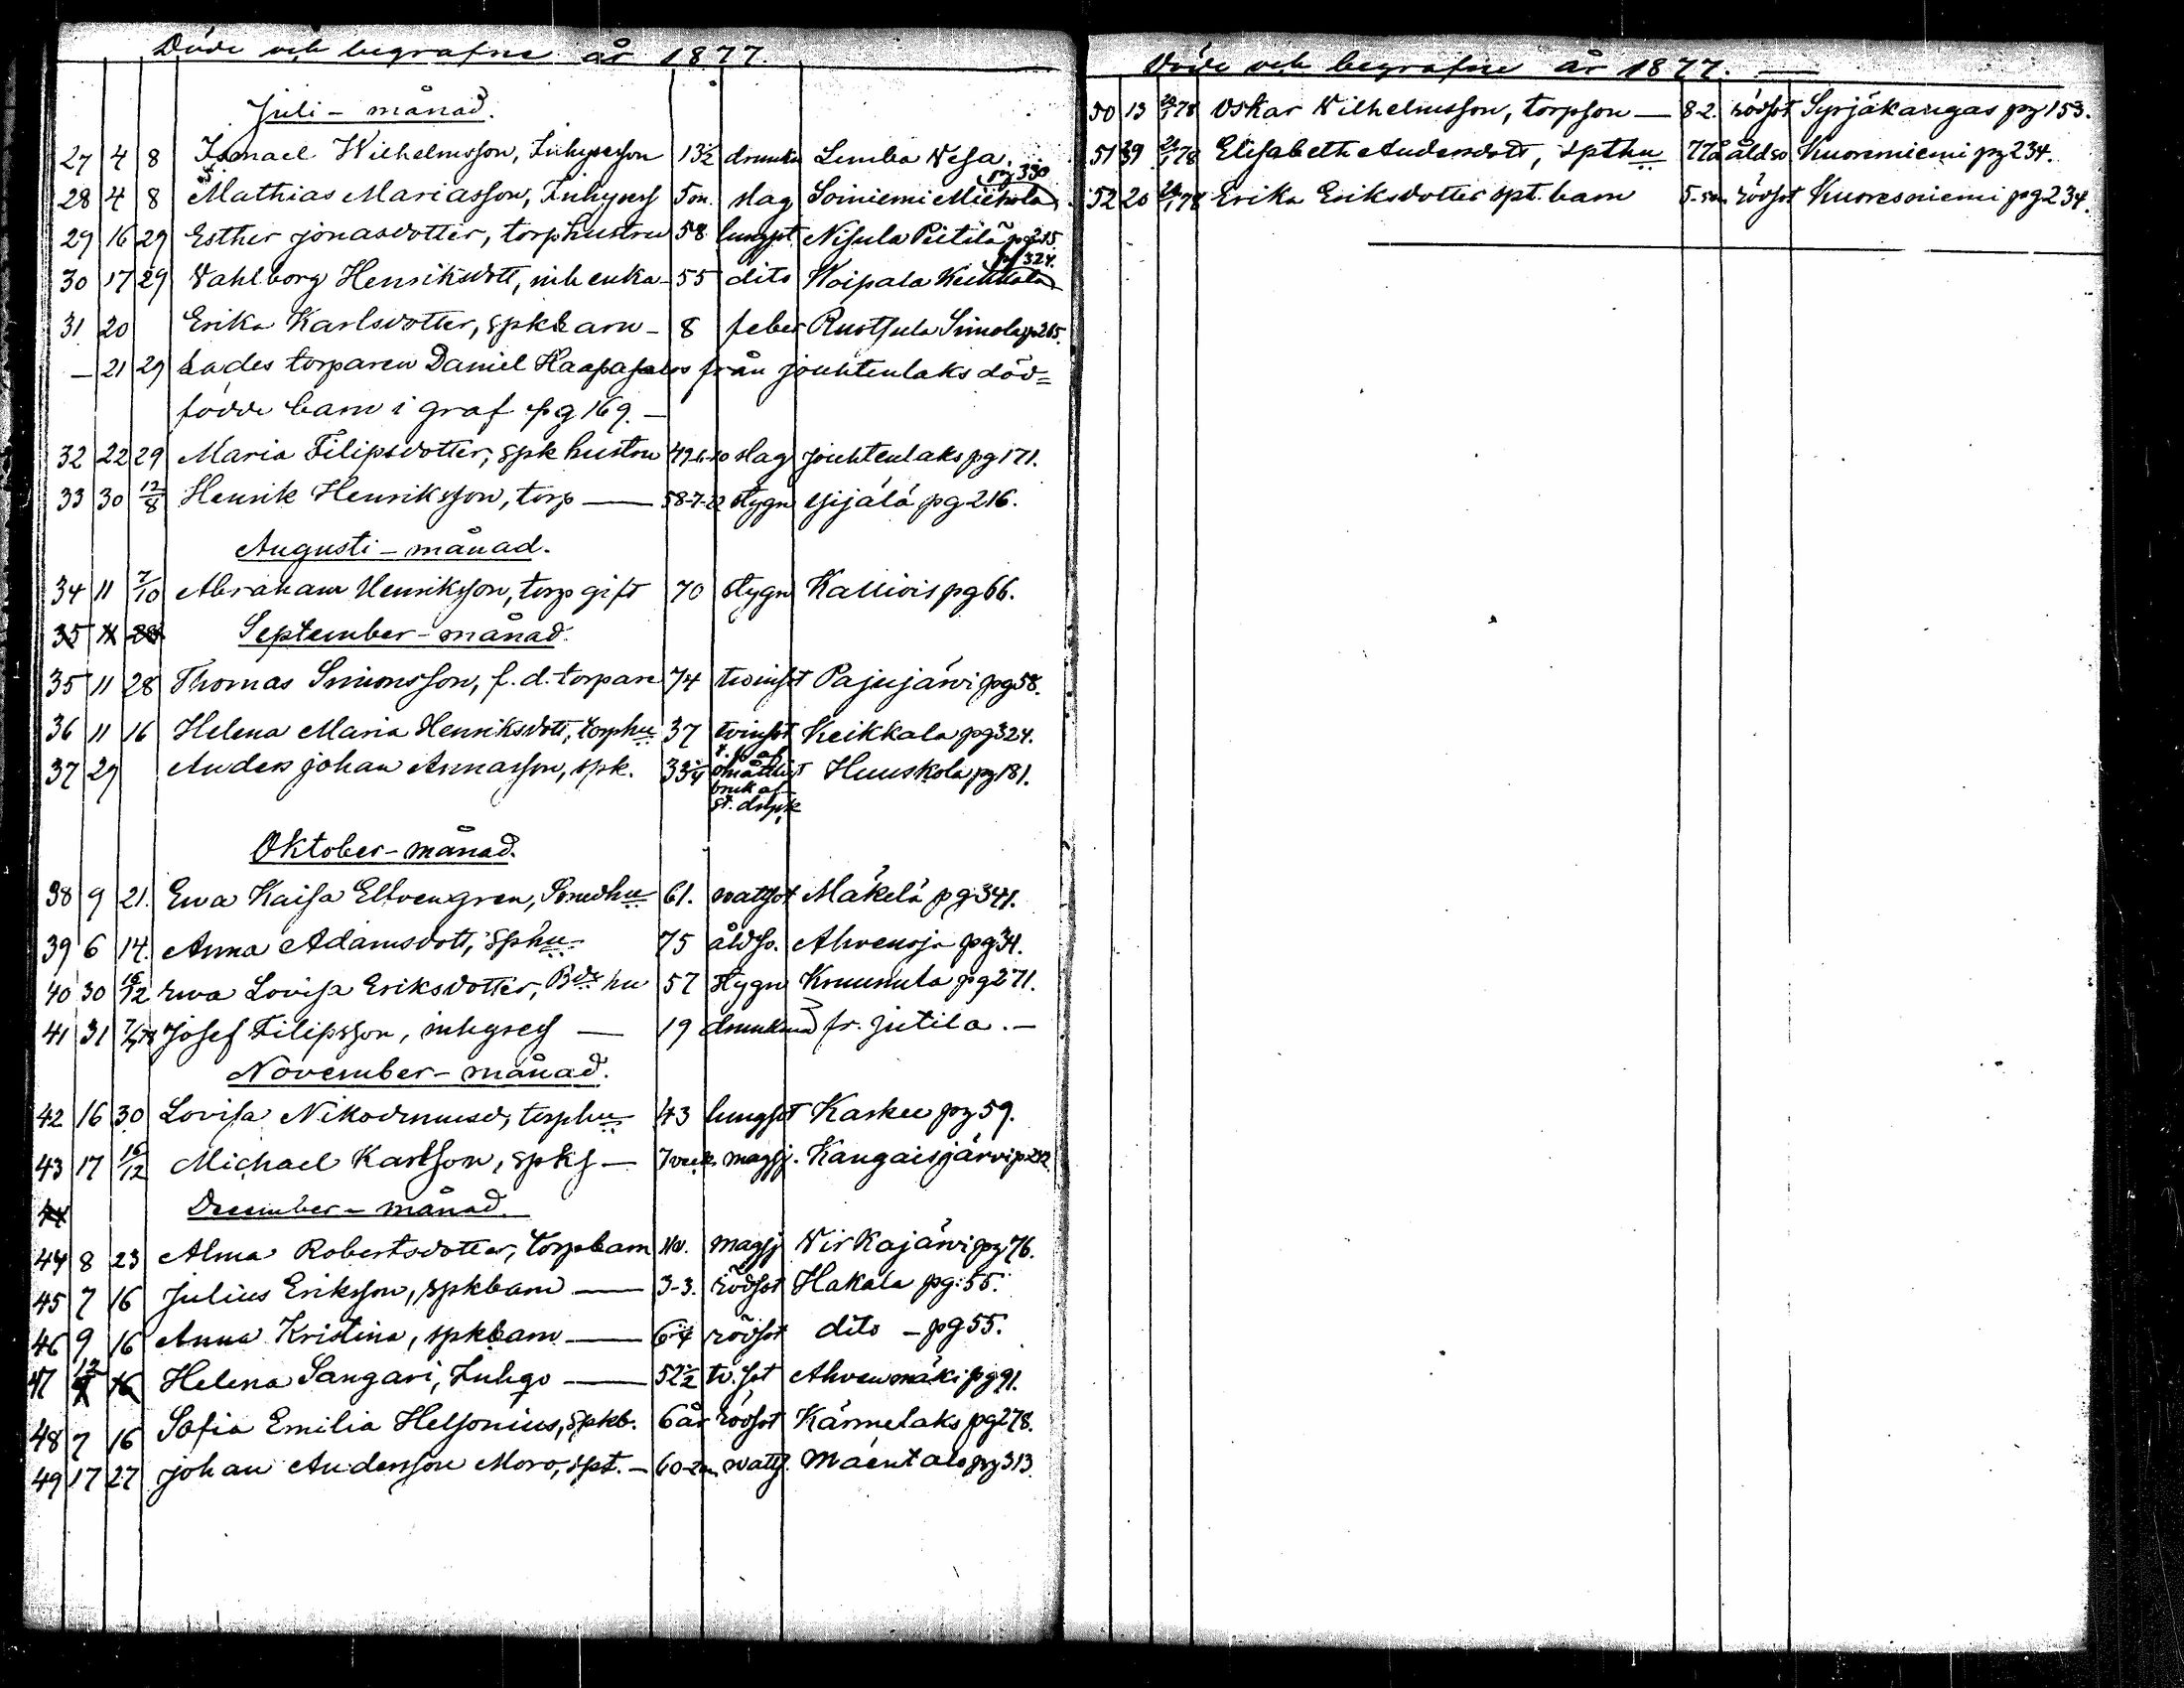 Döde och begrafne år 1877.
Juli - månad.
27 4 8 Ismael Wilhelmsson, Inhyseson 13½ drunkn Lemba Wesa.
28 4 8 Mathias Mariasson, Inhyses 5m. slag Soiniemi Mickola pg 330
29 16 29 Esther Jonasdotter, torphustru 58 lungst Nisula Peitilä pg 215.
30 17 29 Wahlborg Henriksdott, inh enka - 55 dito Woipala Keikkala pg 324.
31 20 Erika Karlsdotter, spkbarn - 8 feber Ruotsula Simola pg 265.
- 21 29 Lades torparen Daniel Haapasalos från Jouhtenlaks död=
födde barn i graf pg 169. -
32 22 29 Maria Filipsdotter, spk hustru 49-6-20 slag Jouhtenlaks pg 171.
33 30 12/8 Henrik Henriksson, torp — 58-7-22 stygn pg 216.
Augusti - månad.
34 11 7/10 Abraham Henriksson, torp gift 70 stygn Kalliois pg 66.
35 11 28 September - månad.
35 11 28 Thomas Simonsson, f. d. torpare 74 twinsot Pajujärvi pg 58.
36 11 16 Helena Maria Henriksdott, torphu 37 tvinsot Keikkala pg 324.
37 29 Anders Johan Annasson, spk. 33¾ omåttligt Huuskola pg 181.
bruk af
st. drpk
Oktober - månad.
38 9 21. Ewa Kaisa Ellvengren, 61. wattsot Mäkelä pg 341.
39 6 14. Anna Adamsdott, sphu 75 åldrs. Ahvensja pg 34.
40 30 16/12 Ewa Lovisa Eriksdotter, Bde hu 57 stygn Kruunula pg 271.
41 31 Josef Filipsson, inhyses — 19 drunknad fr. Jutila. -
November - månad.
42 16 30 Lovisa Nikodemusd, torphu 43 lungsot Kaskee pg 59.
43 17 16/12 Michael Karlsson, spks — 7 veck. magsj. Kangaisjärvi p 242
44 December - månad.
44 8 23 Alma Robertsdotter, torpbarn magsj Wirkajärvi pg 76.
45 7 16 Julius Eriksson, spkbarn — 3-3. rödsot Hakala pg. 55.
46 9 16 Anna Kristina, spkbarn — 6-4 rödsot dito - pg 55.
47 12 16 Helena Sangari, Inhqo — 52½ tw. sot Ahvenmäki pg 91.
48 7 16 Sofia Emilia Helsonius, spkb. 6 år rödsot Kärmelaks pg 278.
49 17 27 Johan Andersson Moro, spt. - 60-2m wattj. Mäentalo pg 313
Döde och begrafne år 1877. —
50 13 20/1 78 Oskar Wilhelmsson, torpson — 8-2. rödsot Syrjäkangas pg 153.
51 39 20/1 78 Elisabeth Andersdott, spthu 77å åld so Kuoresniemi pg 234.
52 20 20/1 78 Erika Eriksdotter spt. barn rödsot Kuoresniemi pg 234.